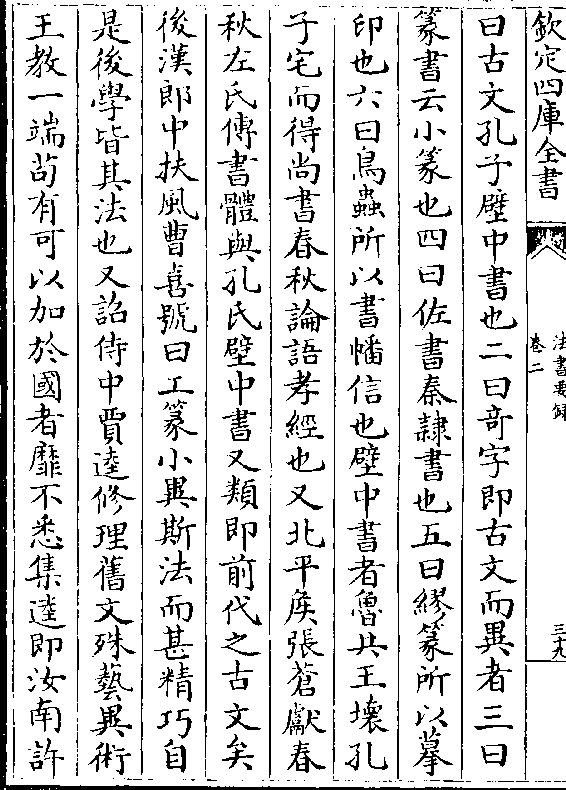 欽定四庫全書
法書要録
卷二
三十九
曰古文孔子壁中書也二曰竒字即古文而異者三曰
篆書云小篆也四曰佐書秦隷書也五曰繆篆所以摹
印也六曰鳥蟲所以書幡信也壁中書者魯共王壊孔
子宅而得尚書春秋論語孝經也又北平侯張蒼獻春
秋左氏傳書體與孔氏壁中書又類即前代之古文矣
後漢郎中扶風曹喜號曰工篆小異斯法而甚精巧自
是後學皆其法也又詔侍中賈逵修理舊文殊藝異術
王教一端茍有可以加於國者靡不悉集逵即汝南許